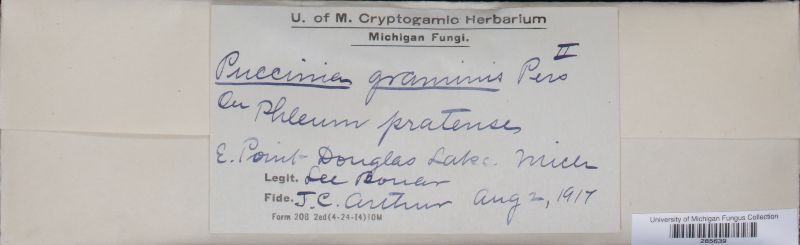 U. of M. Cryptogamic Herbarium
Michigan Fungi.
II
Puccinia graminis Pers
On Phleum pratense
E. Point Douglas Lake. Mich
Legit. Lee Bonar
Fide. J.C. Arthur Aug 2, 1917
Form 208 2ed(4-24-14)10M
University of Michigan Fungus Collection
265639